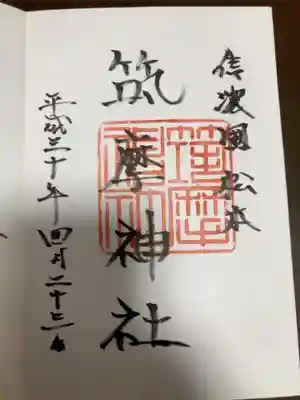 信濃國松本
筑摩神社
平成三十年四月二十三日